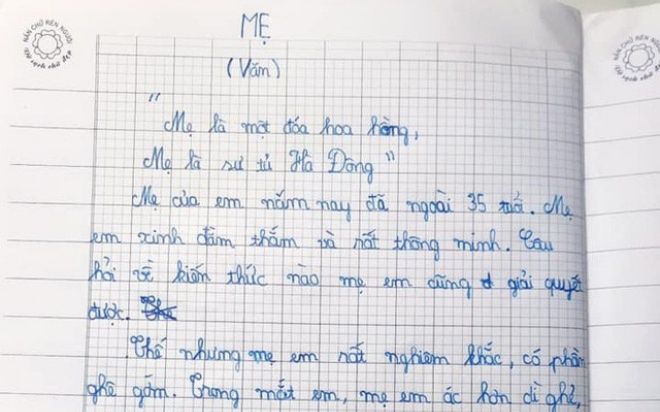 MẸ
(Văn)
"
Mẹ là một đóa hoa hồng,
Mẹ là sư tử Hà Đông"
Mẹ của em năm nay đã ngoài 35 tuổi. Mẹ
em xinh đằm thắm và rất thông minh. Câu
hỏi về kiến thức nào mẹ em cũng giải quyết
được.
Thế nhưng mẹ em rất nghiêm khắc, có phần
ghê gớm. Trong mắt em, mẹ em ác hơn dì ghẻ,
NẮN CHỮ RÈN NGƯỜI
Vở sạch chữ đẹp
NẮN CHỮ RÈN
Vở sạch chữ đẹp